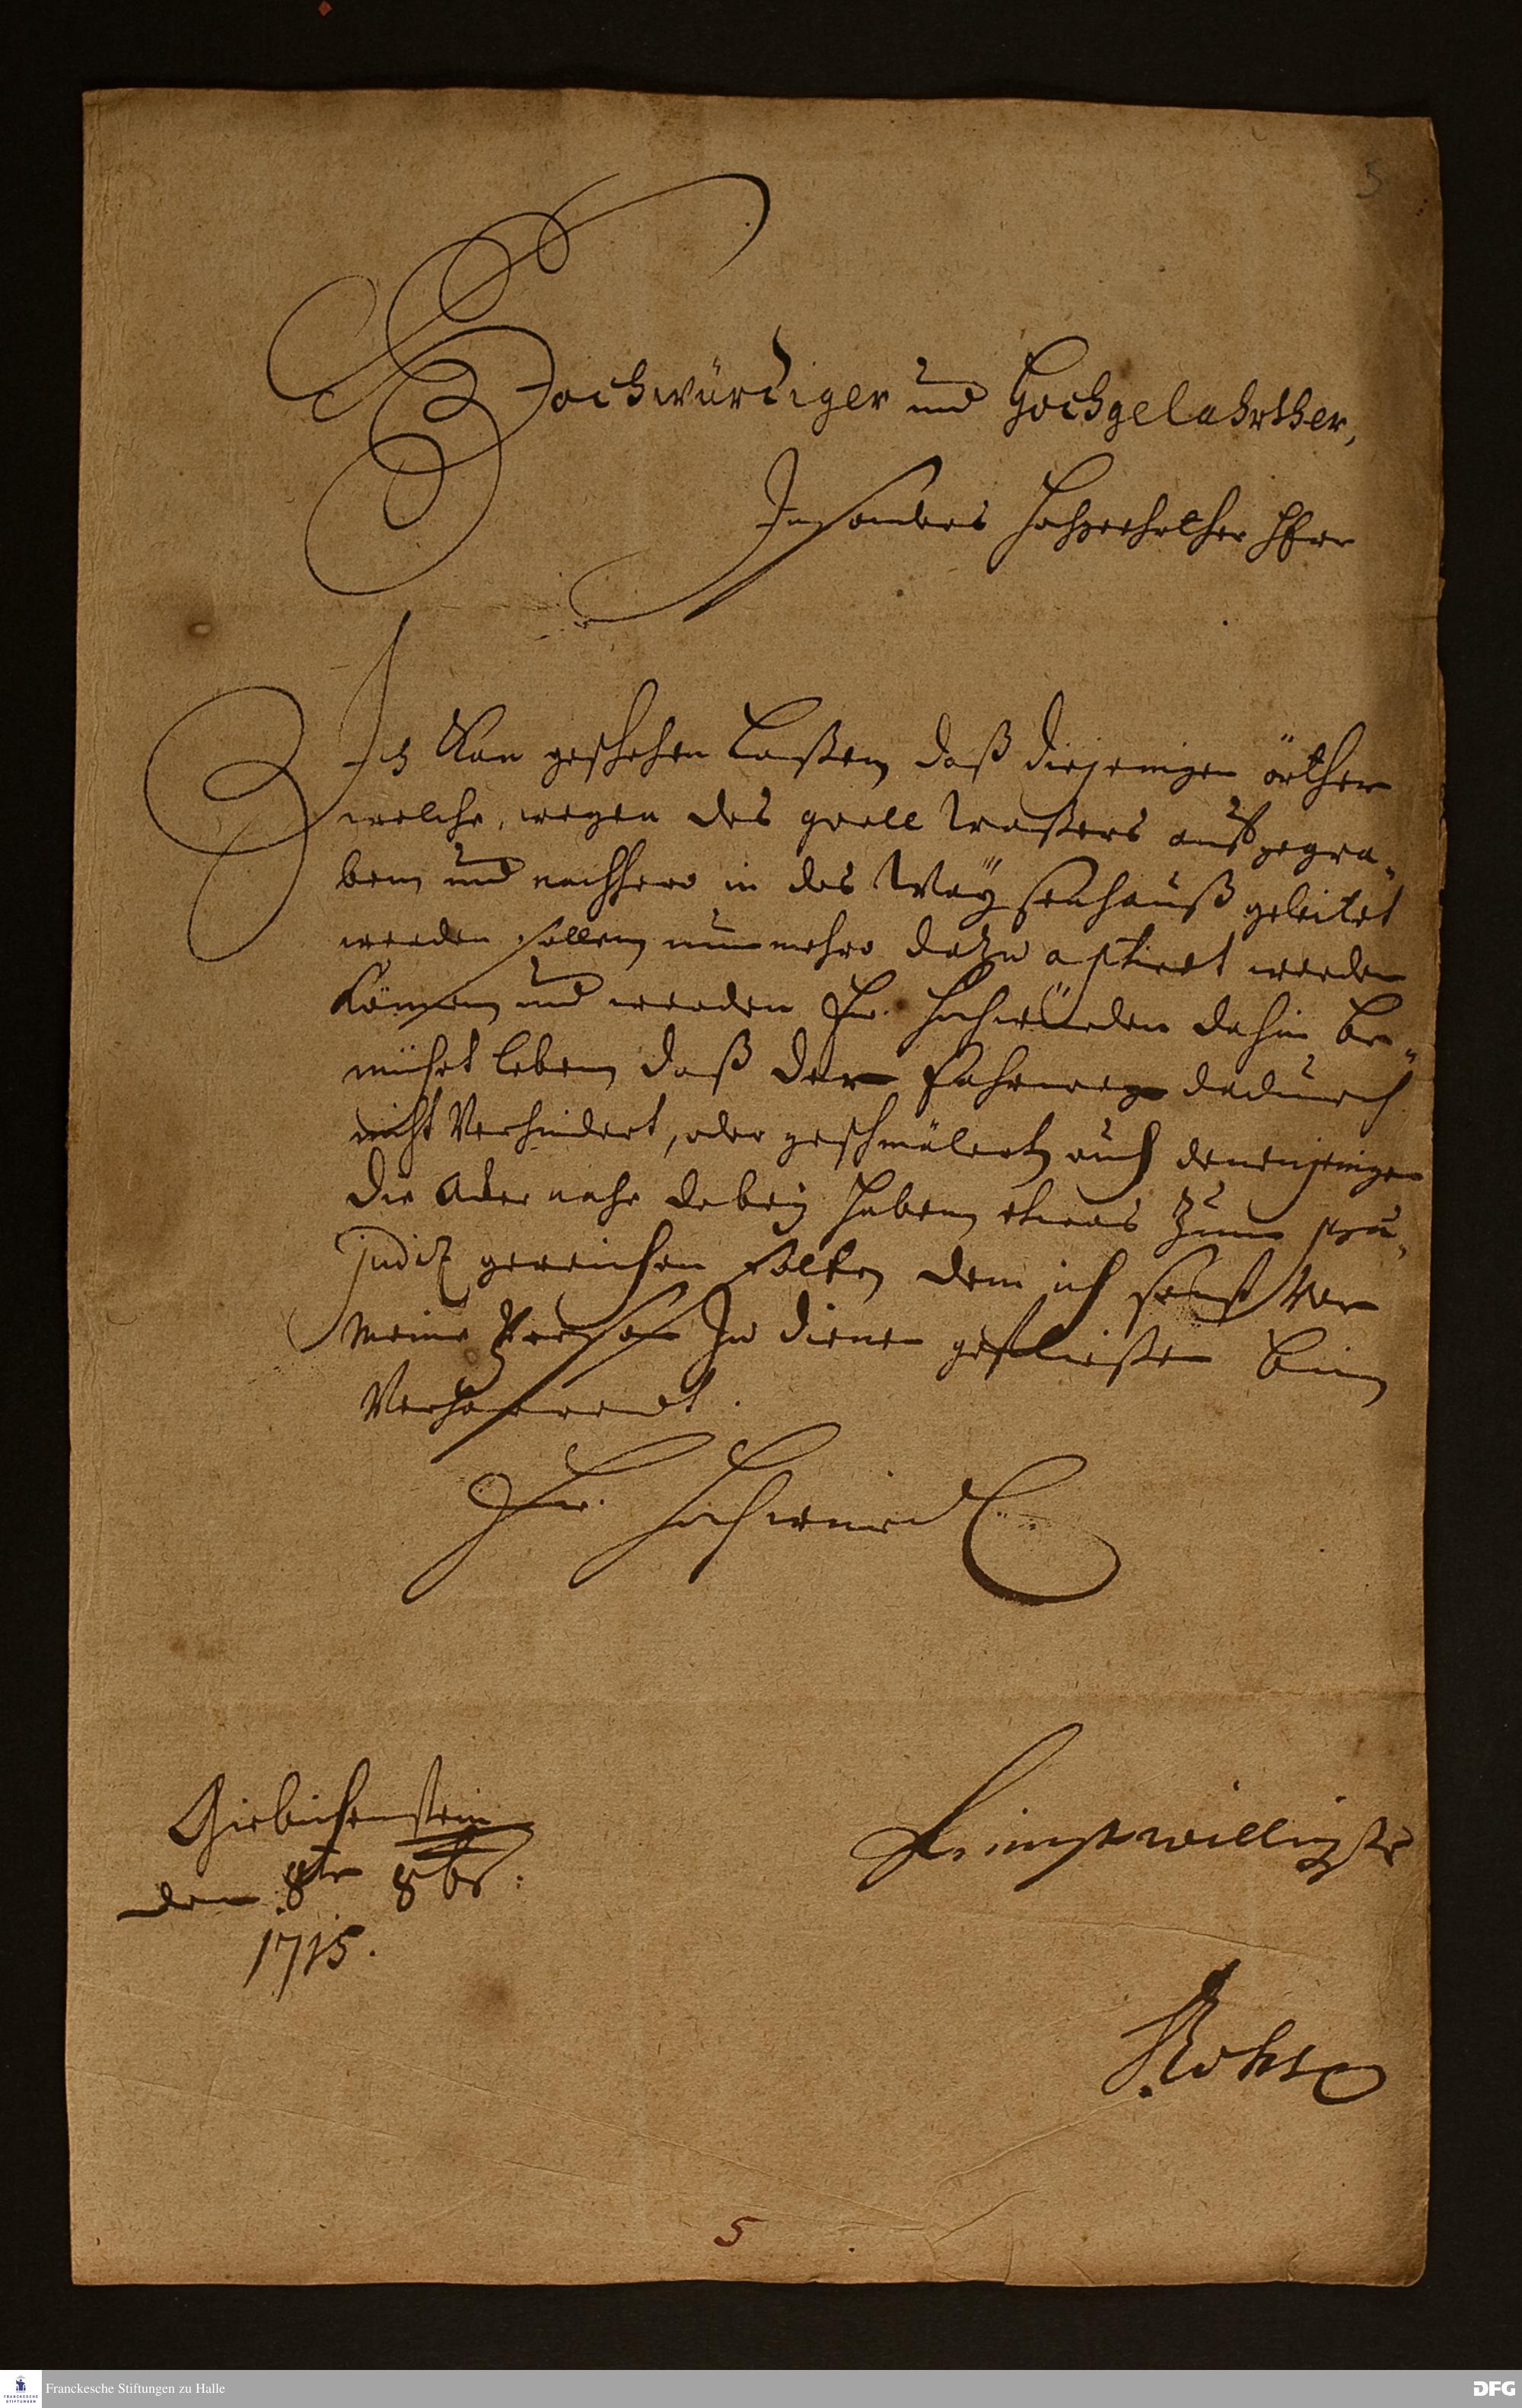 5
Hochwürdiger und Hochgelahrther,
Insonders Hochgeehrther Herr
Ich Kan geschehen Laßen, daß diejenigen örther
welche, wegen des quell Waßers auß gegra„
ben, und nachhero in das Waÿsenhauß geleitet
werden sollen, nunmehro dazu aptiret werden
Können, und werden Ew. Hochwürden dahin be„
mühet leben, daß der Fahrweg dadurch
nicht Verhindert, oder geschmälert, auch denenjenigen
die Aker nahe dabeÿ haben, etwas zum præ„
juditz gereichen solte, dem ich sonst Vor
meine Person Zu dienen gefließen bin,
Verharrendt.
Ew. Hochwürd
Giebichenstein
den 8ten 8br:
1715.
dienstwilligster
5
Franckesche Stiftungen zu Halle
DFG